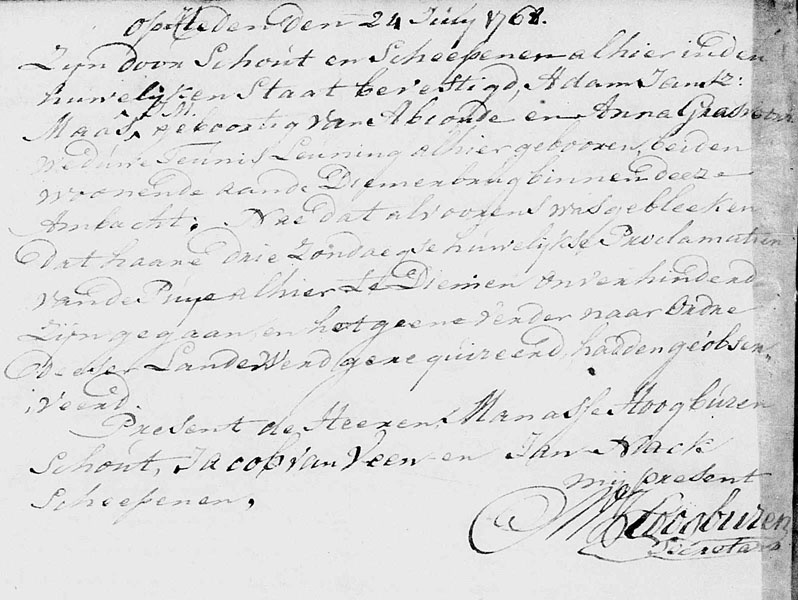 op Heden den 24 July 1768.
Zijn door Schout en Scheepenen alhier in den
huwelijken Staat bevestigd, Adam Jansz:
Maas, J:M: geboortig van Abcoude en Anna
weduwe Teunis Leuning alhier gebooren, beiden
woonende aande Diemerbrug binnen deeze
Ambacht. Nae dat alvoorens was gebleeken
dat haare drie Zondaegse huwelijkse Proclamatien
vande Puye alhier te Diemen onverhinderd
Zijn gegaan, en hetgeene verder naar Ordre
deeser Lande werd gerequireerd, hadden geobser„
veerd.
Present de Heeren Manasse Hoogburen
Schout, Jacob van Veen en Jan Mack
Scheepenen.
mij present
M Hoogburen
Secretaris